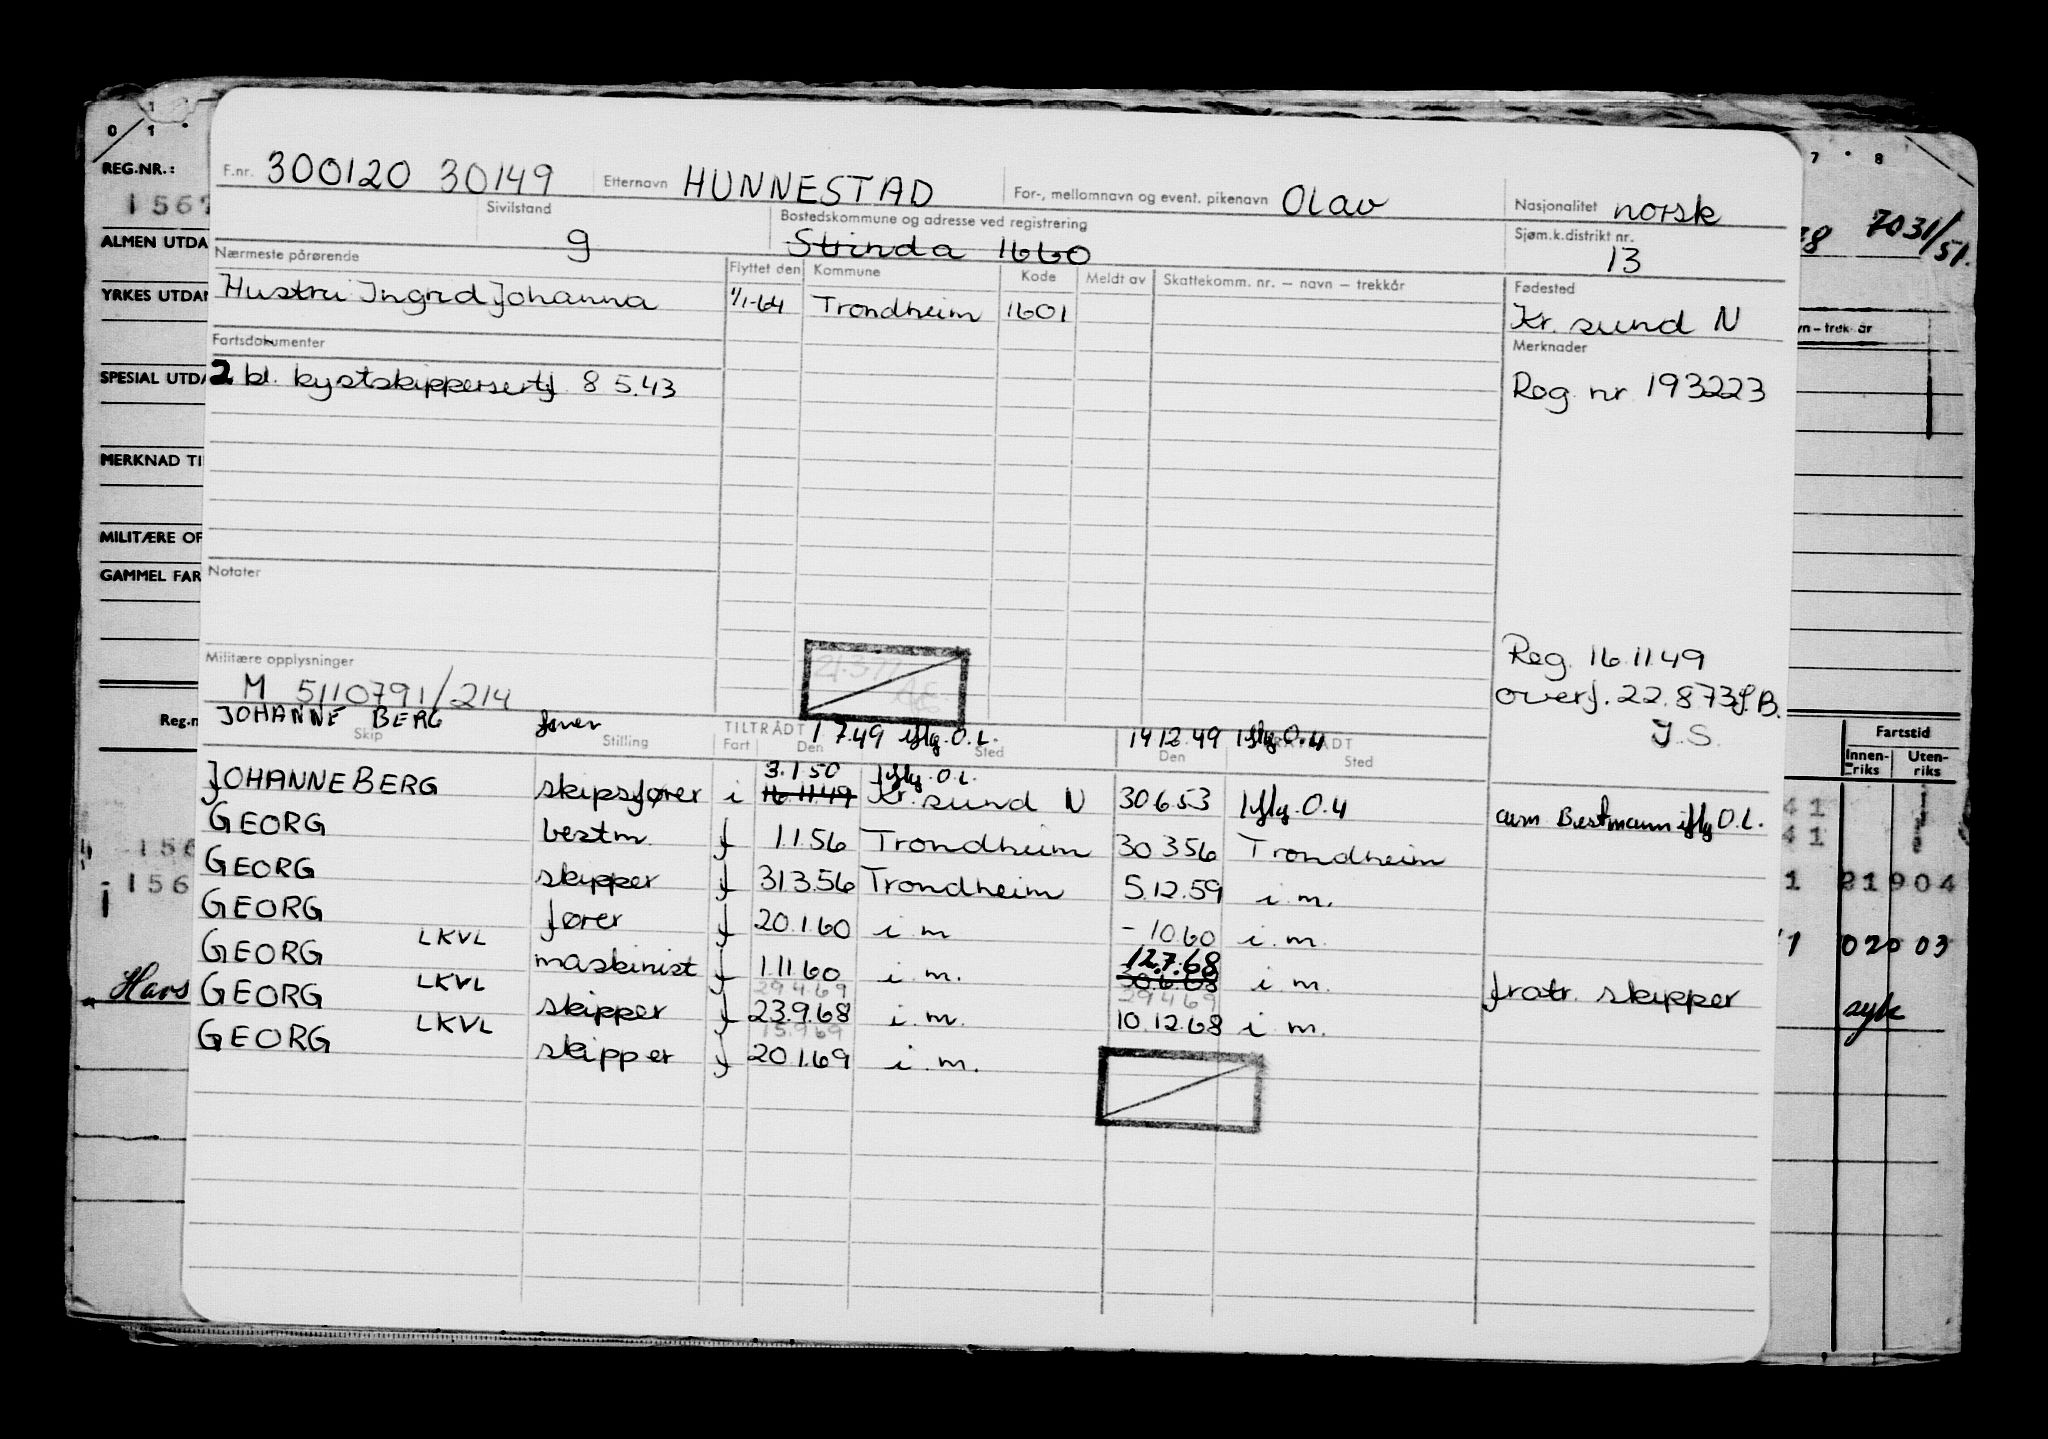 0 1
7 8
REG.NR.:
1567
F.nr. 300120 30149 Etternavn HUNNESTAD For-, mellomnavn og event. pikenavn Olav Nasjonalitet norsk
7031/51.
ALMEN UTDA
Sivilstand g Bostedskommune og adresse ved registrering Strinda 1660 Sjøm.k.distrikt nr. 13
Nærmeste pårørende Flyttet den Kommune Kode Meldt av Skattekomm. nr. – navn – trekkår Fødested
YRKES UTDAN
Hustru Ingrid Johanna 1/1-64 Trondheim 1601 Kr. sund N
vn – trek- år
Fartsdokumenter Merknader
SPESIAL UTDA
2 kl. kystskippersertf 8 5.43 Reg. nr 193223
MERKNAD TI
MILITÆRE OP
GAMMEL FAR
Notater
Militære opplysninger Reg. 16.11.49
M 5110791/214 overf. 22.873 J.B.
J.S.
JOHANNE BERG fører 1 7.49 iflg. O.L. 14 12.49 iflg. O.L
Reg.n
Skip Stilling TILTRÅDT Fart Den Sted Den Sted
Fartstid
Innen-riks Uten-riks
3.1.50 iflg. O.L.
JOHANNE BERG skipsfører i 16.11.49 Kr. sund N 30.6.53 iflg. O.L
som Bestmann iflg O.L.
GEORG bestm. f 1.1.56 Trondheim 30 3 56 Trondheim
GEORG skipper f 31.3.56 Trondheim 5.12.59 i. m.
1 21904
GEORG fører f 20.1.60 i. m – 10.60 i. m.
1 020 03
12.7.68
GEORG LKVL maskinist f 1.11.60 i. m. 30.6.68 i. m. fratr. skipper
Havs
syk
29.4.69 29 4 69
GEORG LKVL skipper f 23.9.68 i. m. 10.12.68 i. m.
15.9.69
GEORG LKVL skipper f 20.1.69 i. m.